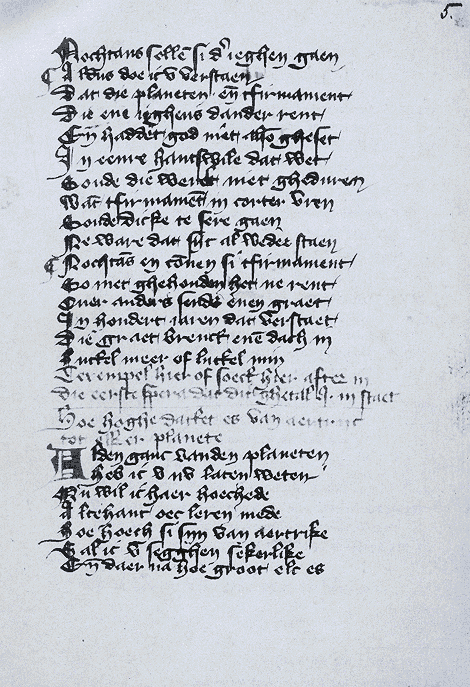 5.
Nochtans selle si dʳ ieghen gaen
Aldus doe ic v verstaen
Dat die planeten en̄ tfirmament
Die ene ieghens dander rent
En̄ haddet god niet also gheset
In eenre hantwile dat wet
Soude die werelt niet gheduren
Want tfirmamēt in corter vren
Soude dicke te sere gaen
Ne ware dat sijt al weder staen
Nochtās en cōnen si tfirmament
So niet ghehouden het ne rent
Ouer anders sende enen graet
In hondert iaren dat verstaet
Die graet brenct enē dach in
Luttel meer of luttel min
Texempel hier of soect hier after in
die eerste spera dat dit ghetal in staet
Hoe hoghe datket es van aertrike
tot elker planete
Alden ganc vanden planeten
Heb ic v nv laten weten
Nu wil ic haer hoechede
Altehant oec leren mede
Hoe hoech si sijn van aertrike
Sal ic v segghen sekerlike
En̄ daer na hoe groot elc es